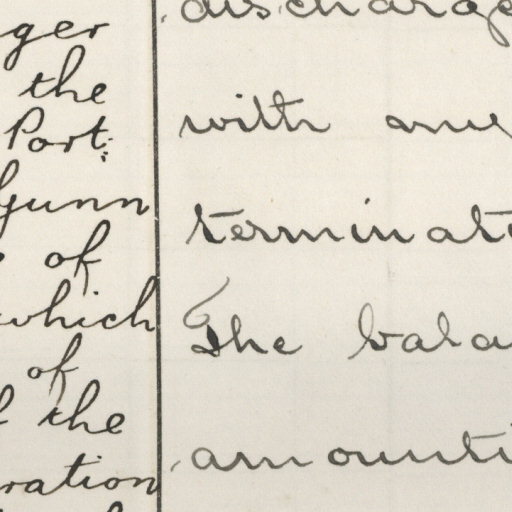 ger
the
Port:
Gunn
of
which
of
the
ration
discharge
with any
terminat
The bala
amounti